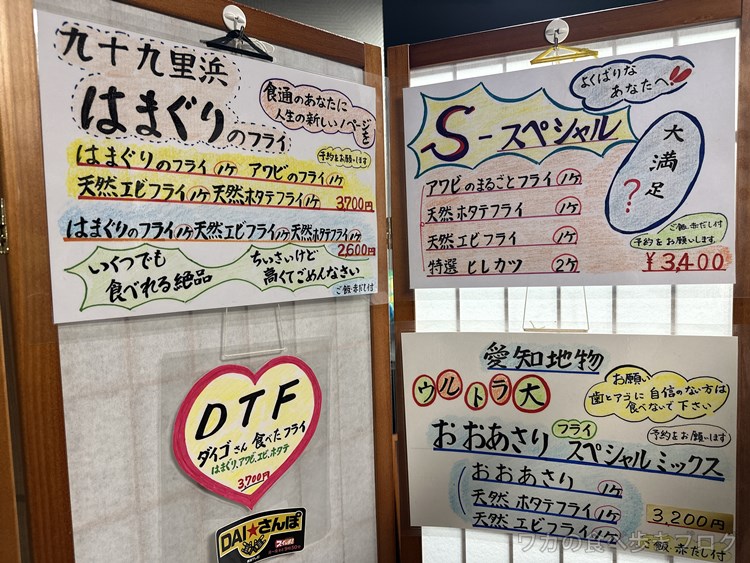 九十九里浜
はまぐりのフライ
食通のあなたに
人生の新しい1ページを
予約をお願します
はまぐりのフライ1ケ アワビのフライ1ケ
天然エビフライ1ケ天然ホタテフライ1ケ
3700円
はまぐりのフライ1ケ天然エビフライ1ケ天然ホタテフライ1ケ
2,600円
いくつでも
食べれる絶品
ちいさいけど
高くてごめんなさい
ご飯・赤だし付
DTF
ダイゴさん食べたフライ
はまぐり、アワビ、エビ、ホタテ
3,700円
DAI★さんぽ
よくばりな
あなたへ!
S-スペシャル
大満足?
アワビのまるごとフライ 1ケ
天然ホタテフライ 1ケ
天然エビフライ 1ケ
特選ヒレカツ 2ケ
ご飯・赤だし付
予約をお願いします
¥3,400
愛知地物
ウルトラ大
お願い
歯とアゴに自信のない方は
食べないで下さい
おおあさりフライスペシャルミックス
予約をお願します
おおあさり 1ケ
天然ホタテフライ 1ケ
天然エビフライ 1ケ
3,200円
ご飯・赤だし付
ワカの食べ歩きブログ